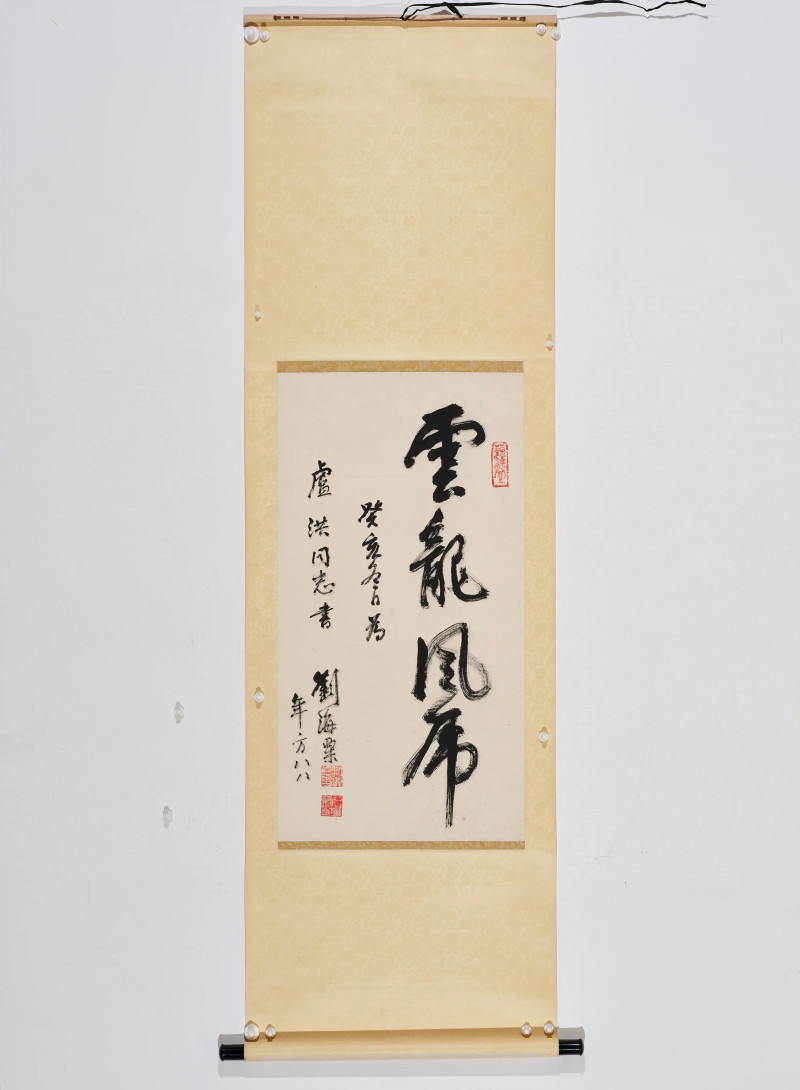 雲龍風虎
癸亥冬日為
盧洪同志書
劉海粟
年方八八